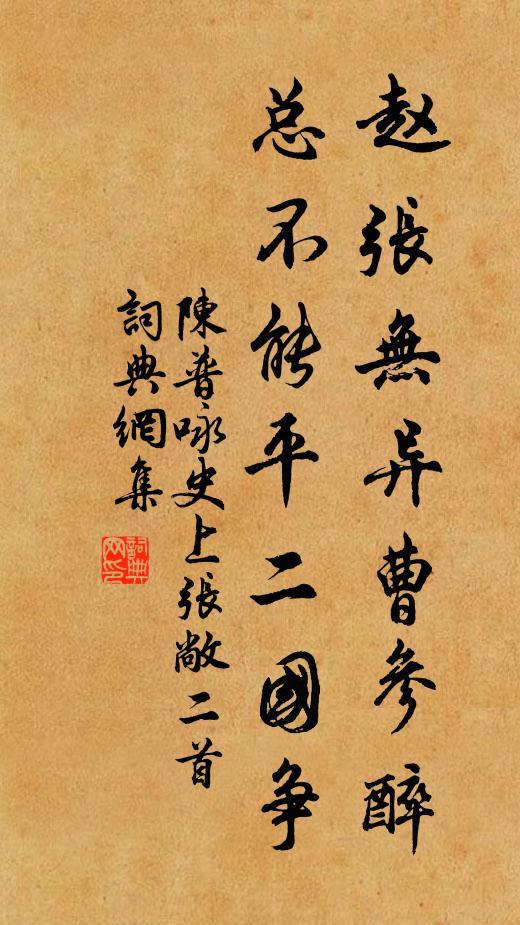 赵張無异曹參醉
总不能平二國争
陳普咏史上張敞二首
詞典網集
詞典
网印